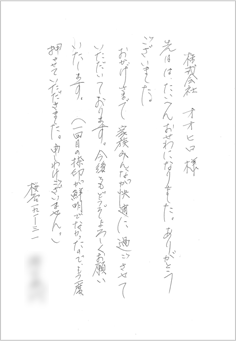 株式会社 オオヒロ 様
先日はたいへんおせわになりました。ありがとう
ございました。
おかげさまで 家族みんなが快適に過ごさせて
いただいております。今後ともどうぞよろしくお願い
いたします。（一回目の捺印が鮮明でなかったので、もう一度
押させていただきました。申しわけございません。）